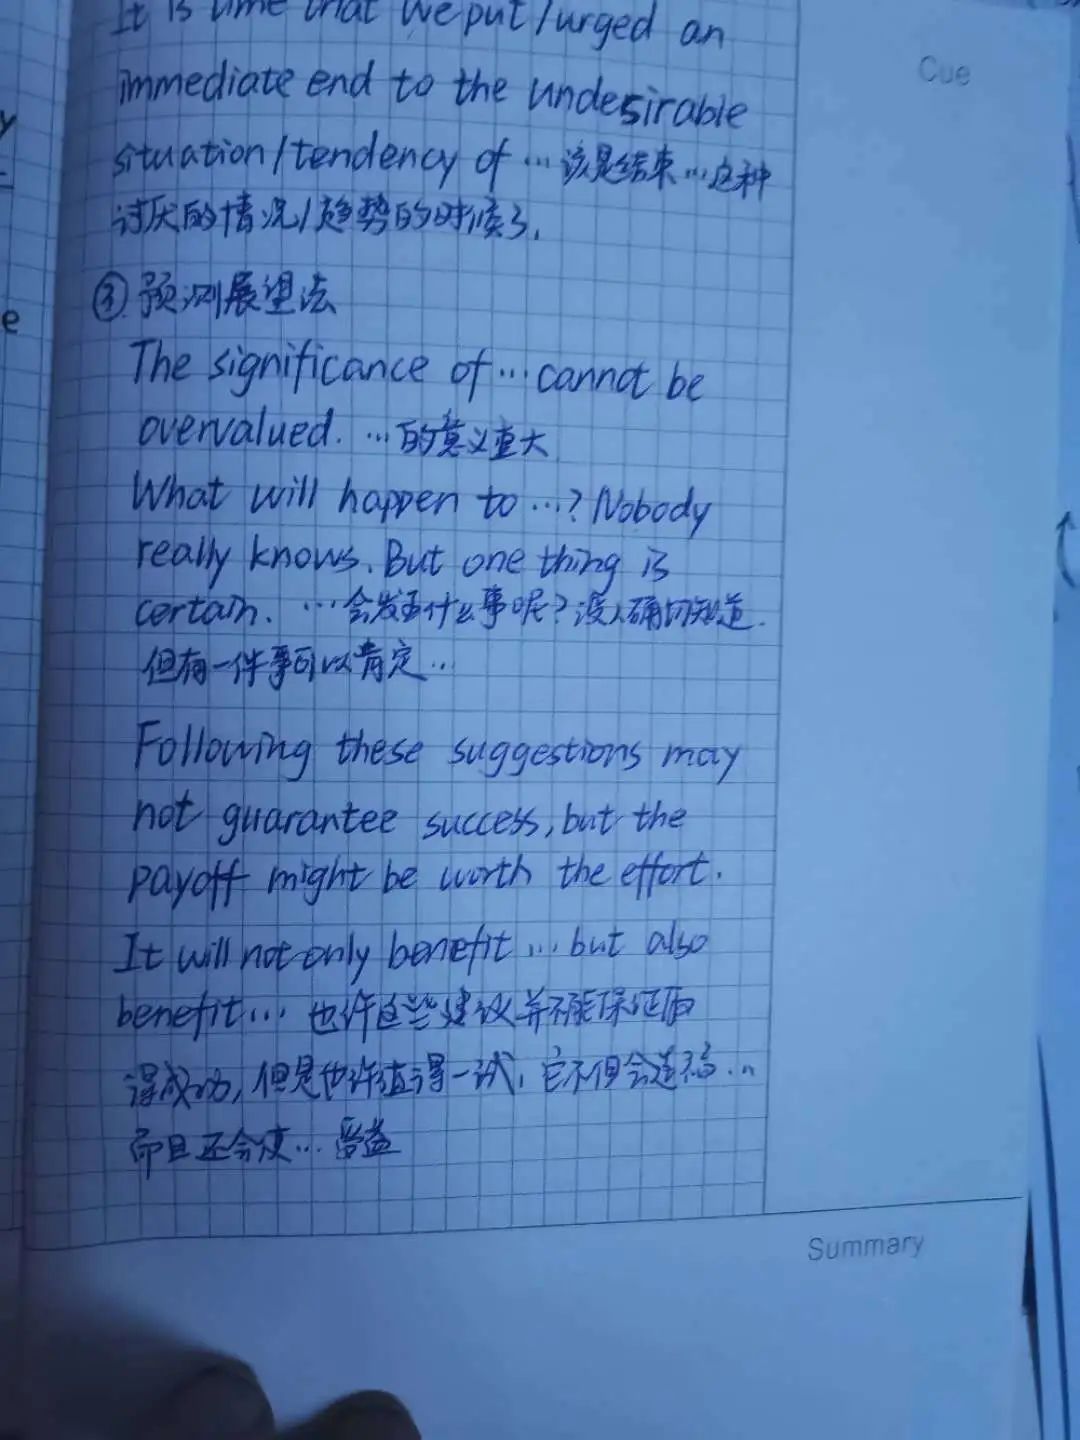 It is time that we put/urged an
Cue
immediate end to the undesirable
situation/tendency of … 该是结束…这种
讨厌的情况/趋势的时候了.
③ 预测展望法
The significance of … cannot be
overvalued. …的意义重大
What will happen to …? Nobody
really knows. But one thing is
certain. …会发生什么事呢? 没人确切知道.
但有一件事可以肯定…
Following these suggestions may
not guarantee success, but the
payoff might be worth the effort.
It will not only benefit … but also
benefit … 也许这些建议并不能保证取
得成功, 但是也许值得一试, 它不但会造福…
而且还会使…受益
Summary
y
e